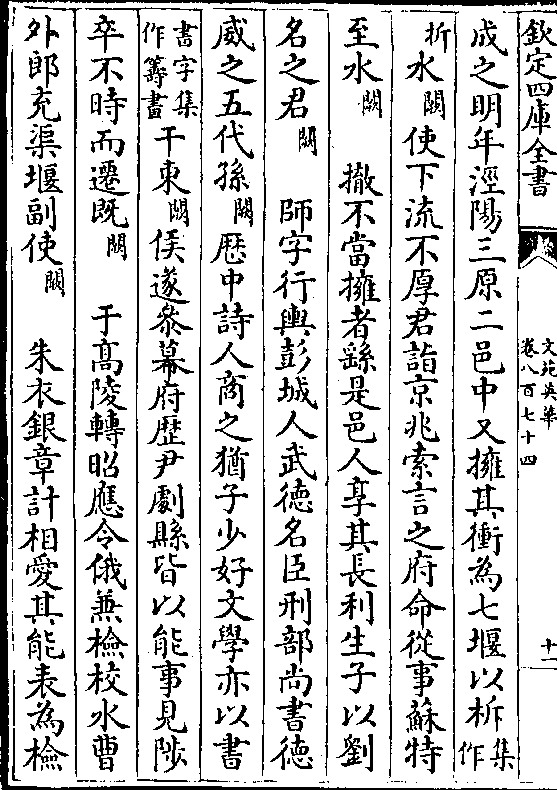 欽定四庫全書
文苑英華
卷八百七十四
十一
成之明年涇陽三原二邑中又擁其衝為七堰以析集作
折水闕使下流不厚君詣京兆索言之府命從事蘇特
至水闕撤不當擁者繇是邑人享其長利生子以劉
名之君闕師字行輿彭城人武德名臣刑部尚書德
威之五代孫闕歴中詩人商之猶子少好文學亦以書
書字集作籌畫干東闕侯遂叅幕府歴尹劇縣皆以能事見陟
卒不時而遷既闕于髙陵轉昭應令俄兼檢校水曹
外郎充渠堰副使闕朱衣銀章計相愛其能表為檢